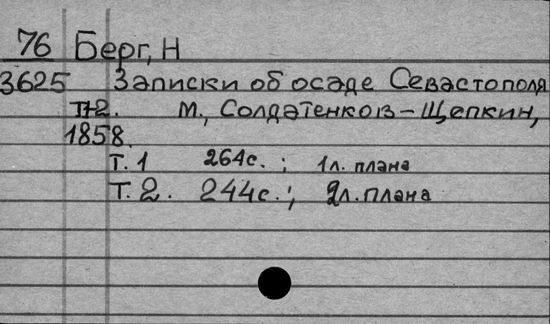 76 Берг, Н
3625 Записки об осаде Севастополя
т1-2. М., Солдатенков-Щепкин,
1858.
Т. 1 264с.; 1л. плана
Т. 2. 244с.; 2л. плана